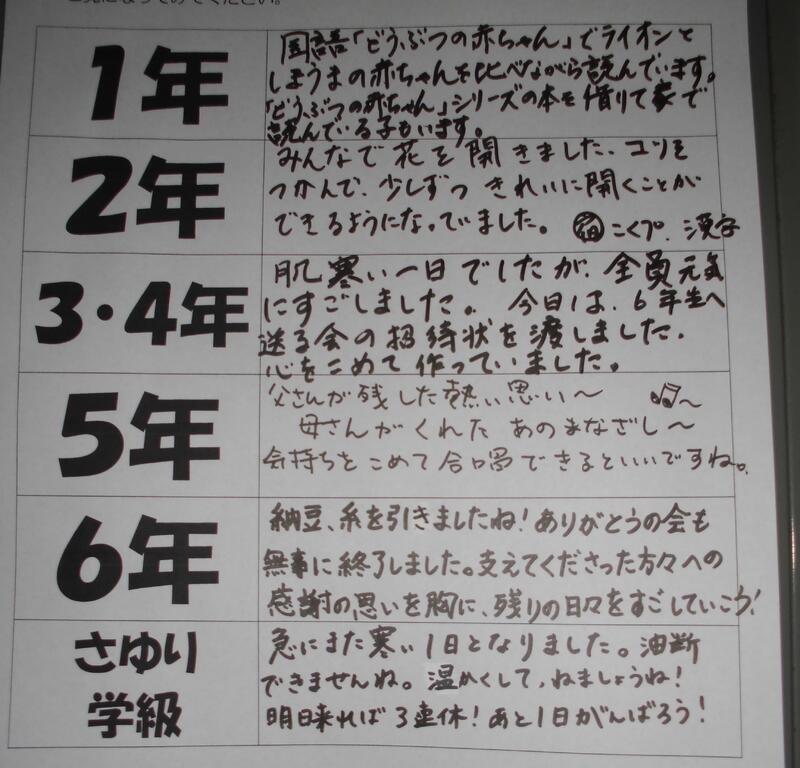 1年
国語「どうぶつの赤ちゃん」でライオンと
しまうまの赤ちゃんを比べながら読んでいます。
「どうぶつの赤ちゃん」シリーズの本を借りて家で
読んでいる子もいます。
2年
みんなで花を開きました、コツを
つかんで、少しずつ きれいに開くことが
できるようになっていました。 宿 こくプ、漢字
3・4年
肌寒い一日でしたが、全員元気
にすごしました。 今日は、6年生へ
送る会の招待状を渡しました、
心をこめて作っていました。
5年
父さんが残した熱い思い〜 ♫〜
母さんがくれた あのまなざし〜
気持ちをこめて合唱できるといいですね。
6年
納豆、糸を引きましたね!ありがとうの会も
無事に終了しました。支えてくださった方々への
感謝の思いを胸に、残りの日々をすごしていこう!
さゆり
学級
急にまた寒い1日となりました。油断
できませんね。温かくして、ねましょうね!
明日来れば3連休!あと1日がんばろう!